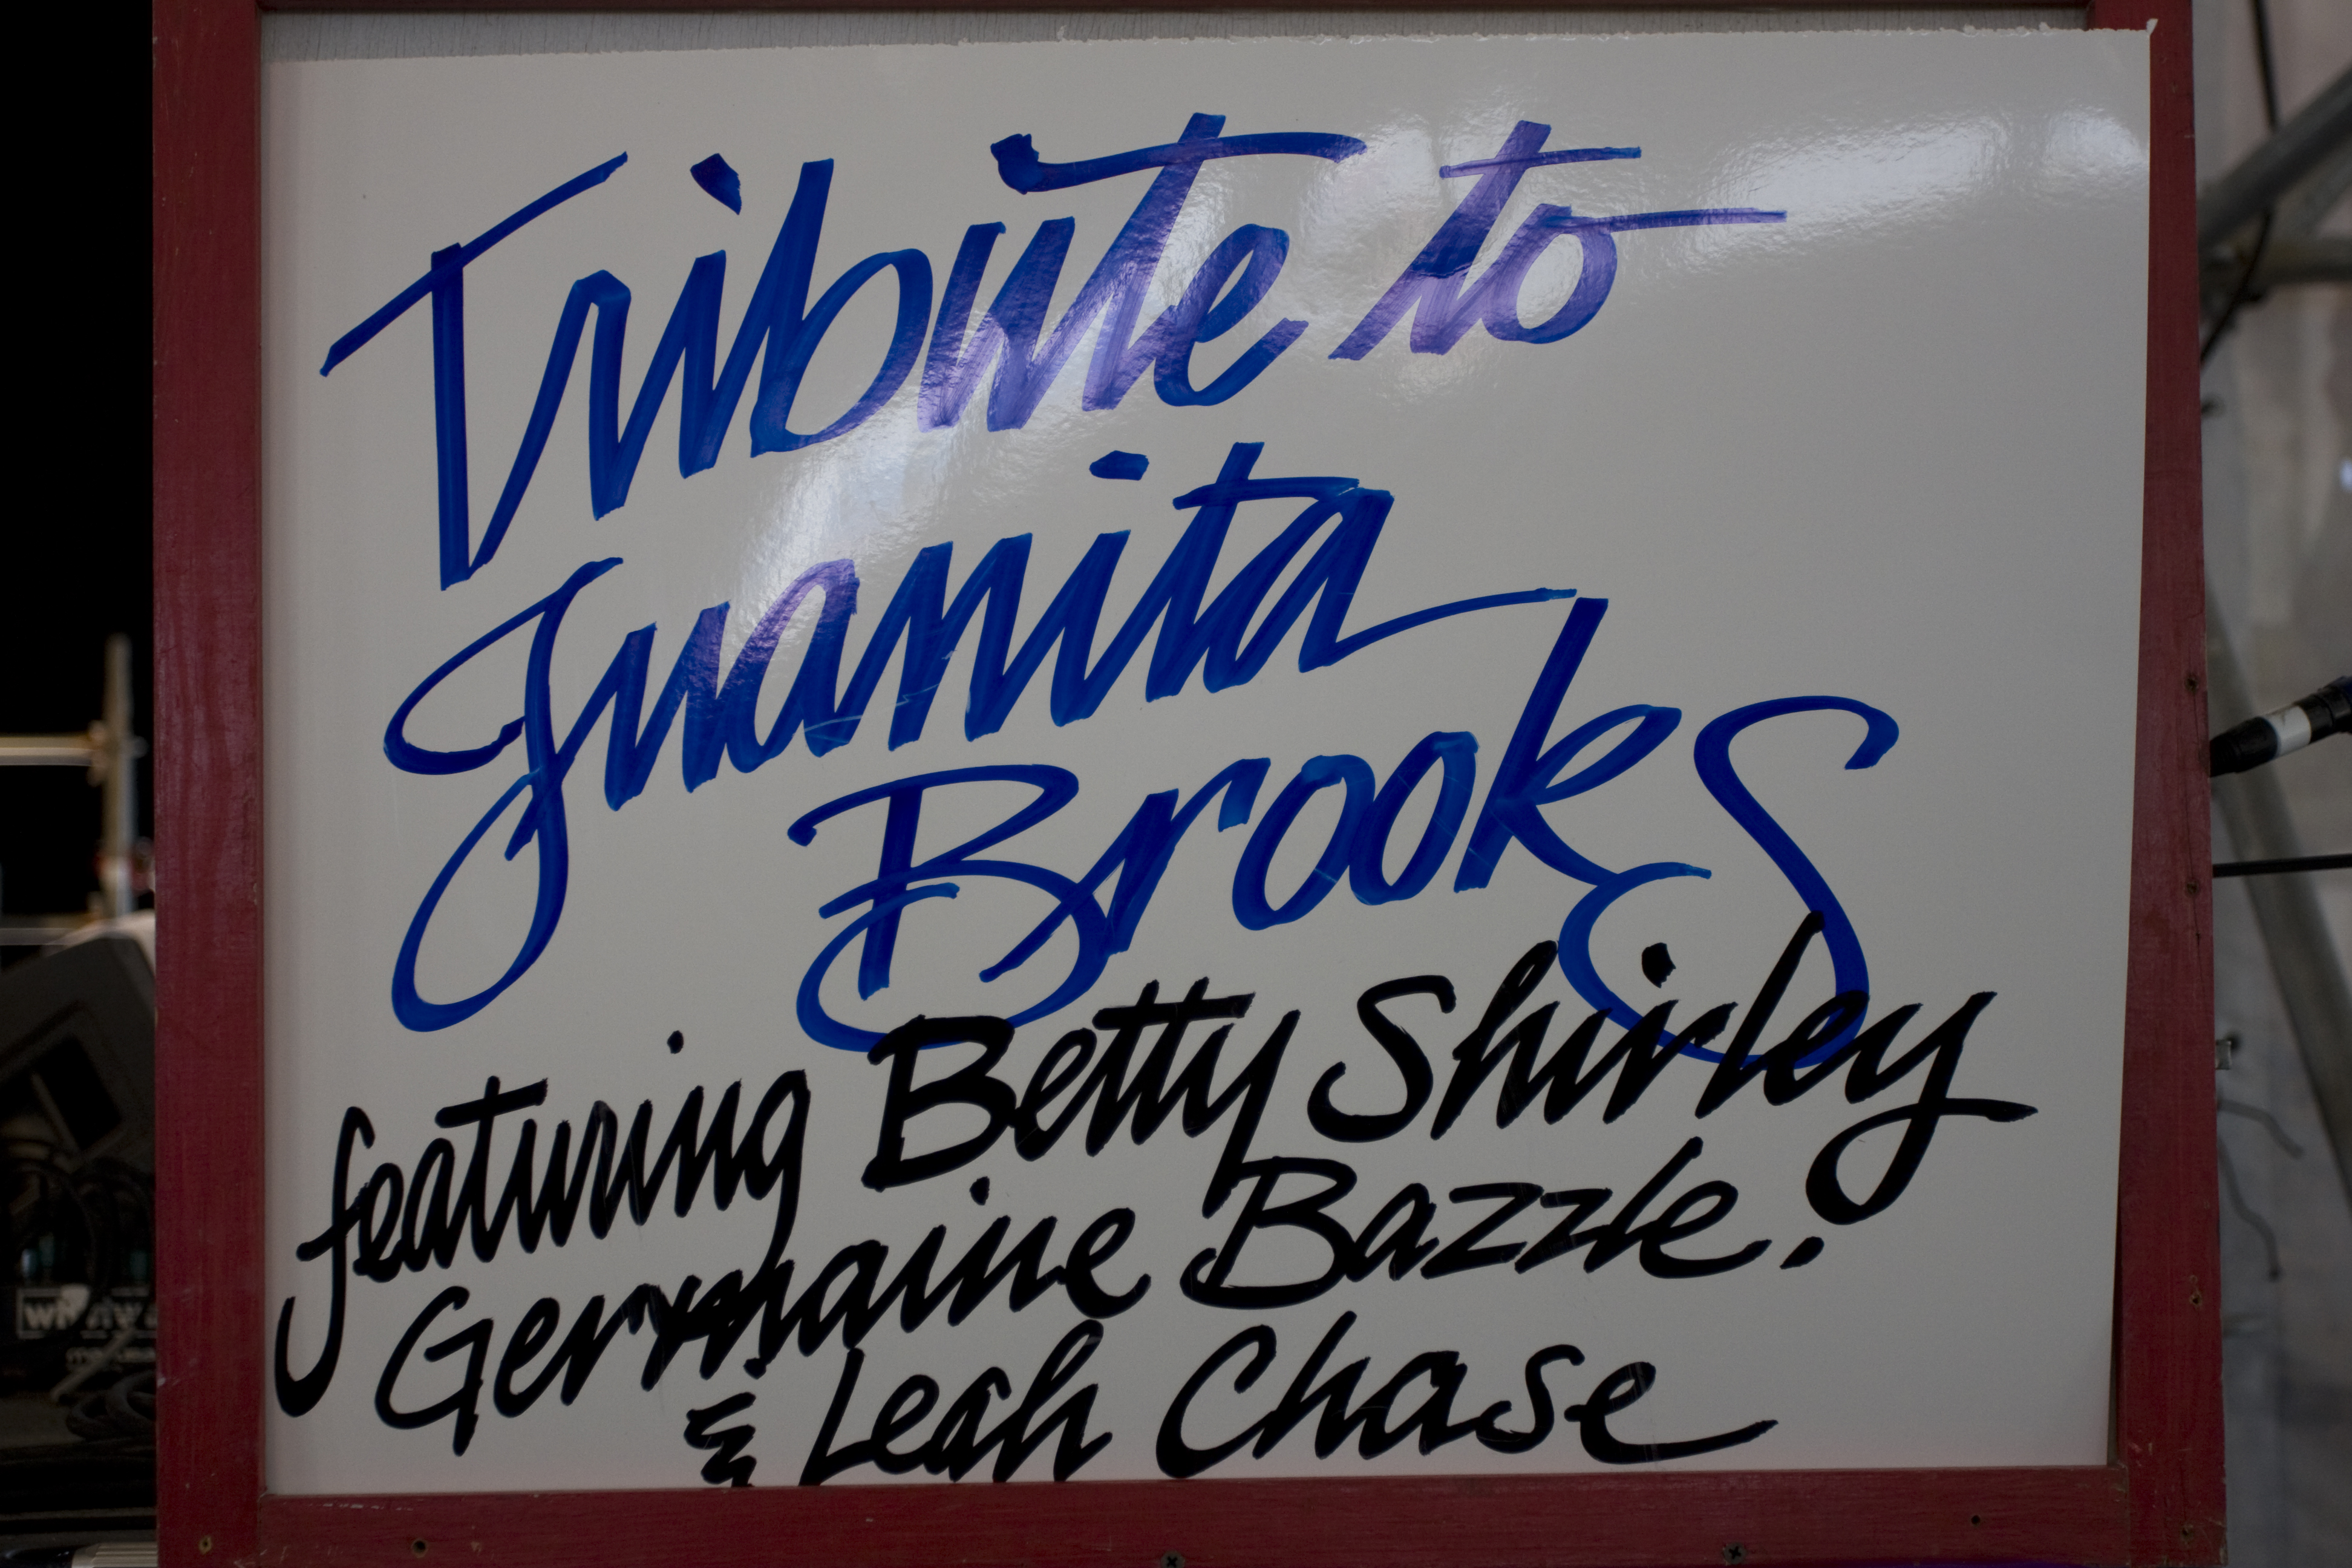 Tribute to
Juanita
Brooks
featuring Betty Shirley
Germaine Bazzle.
& Leah Chase